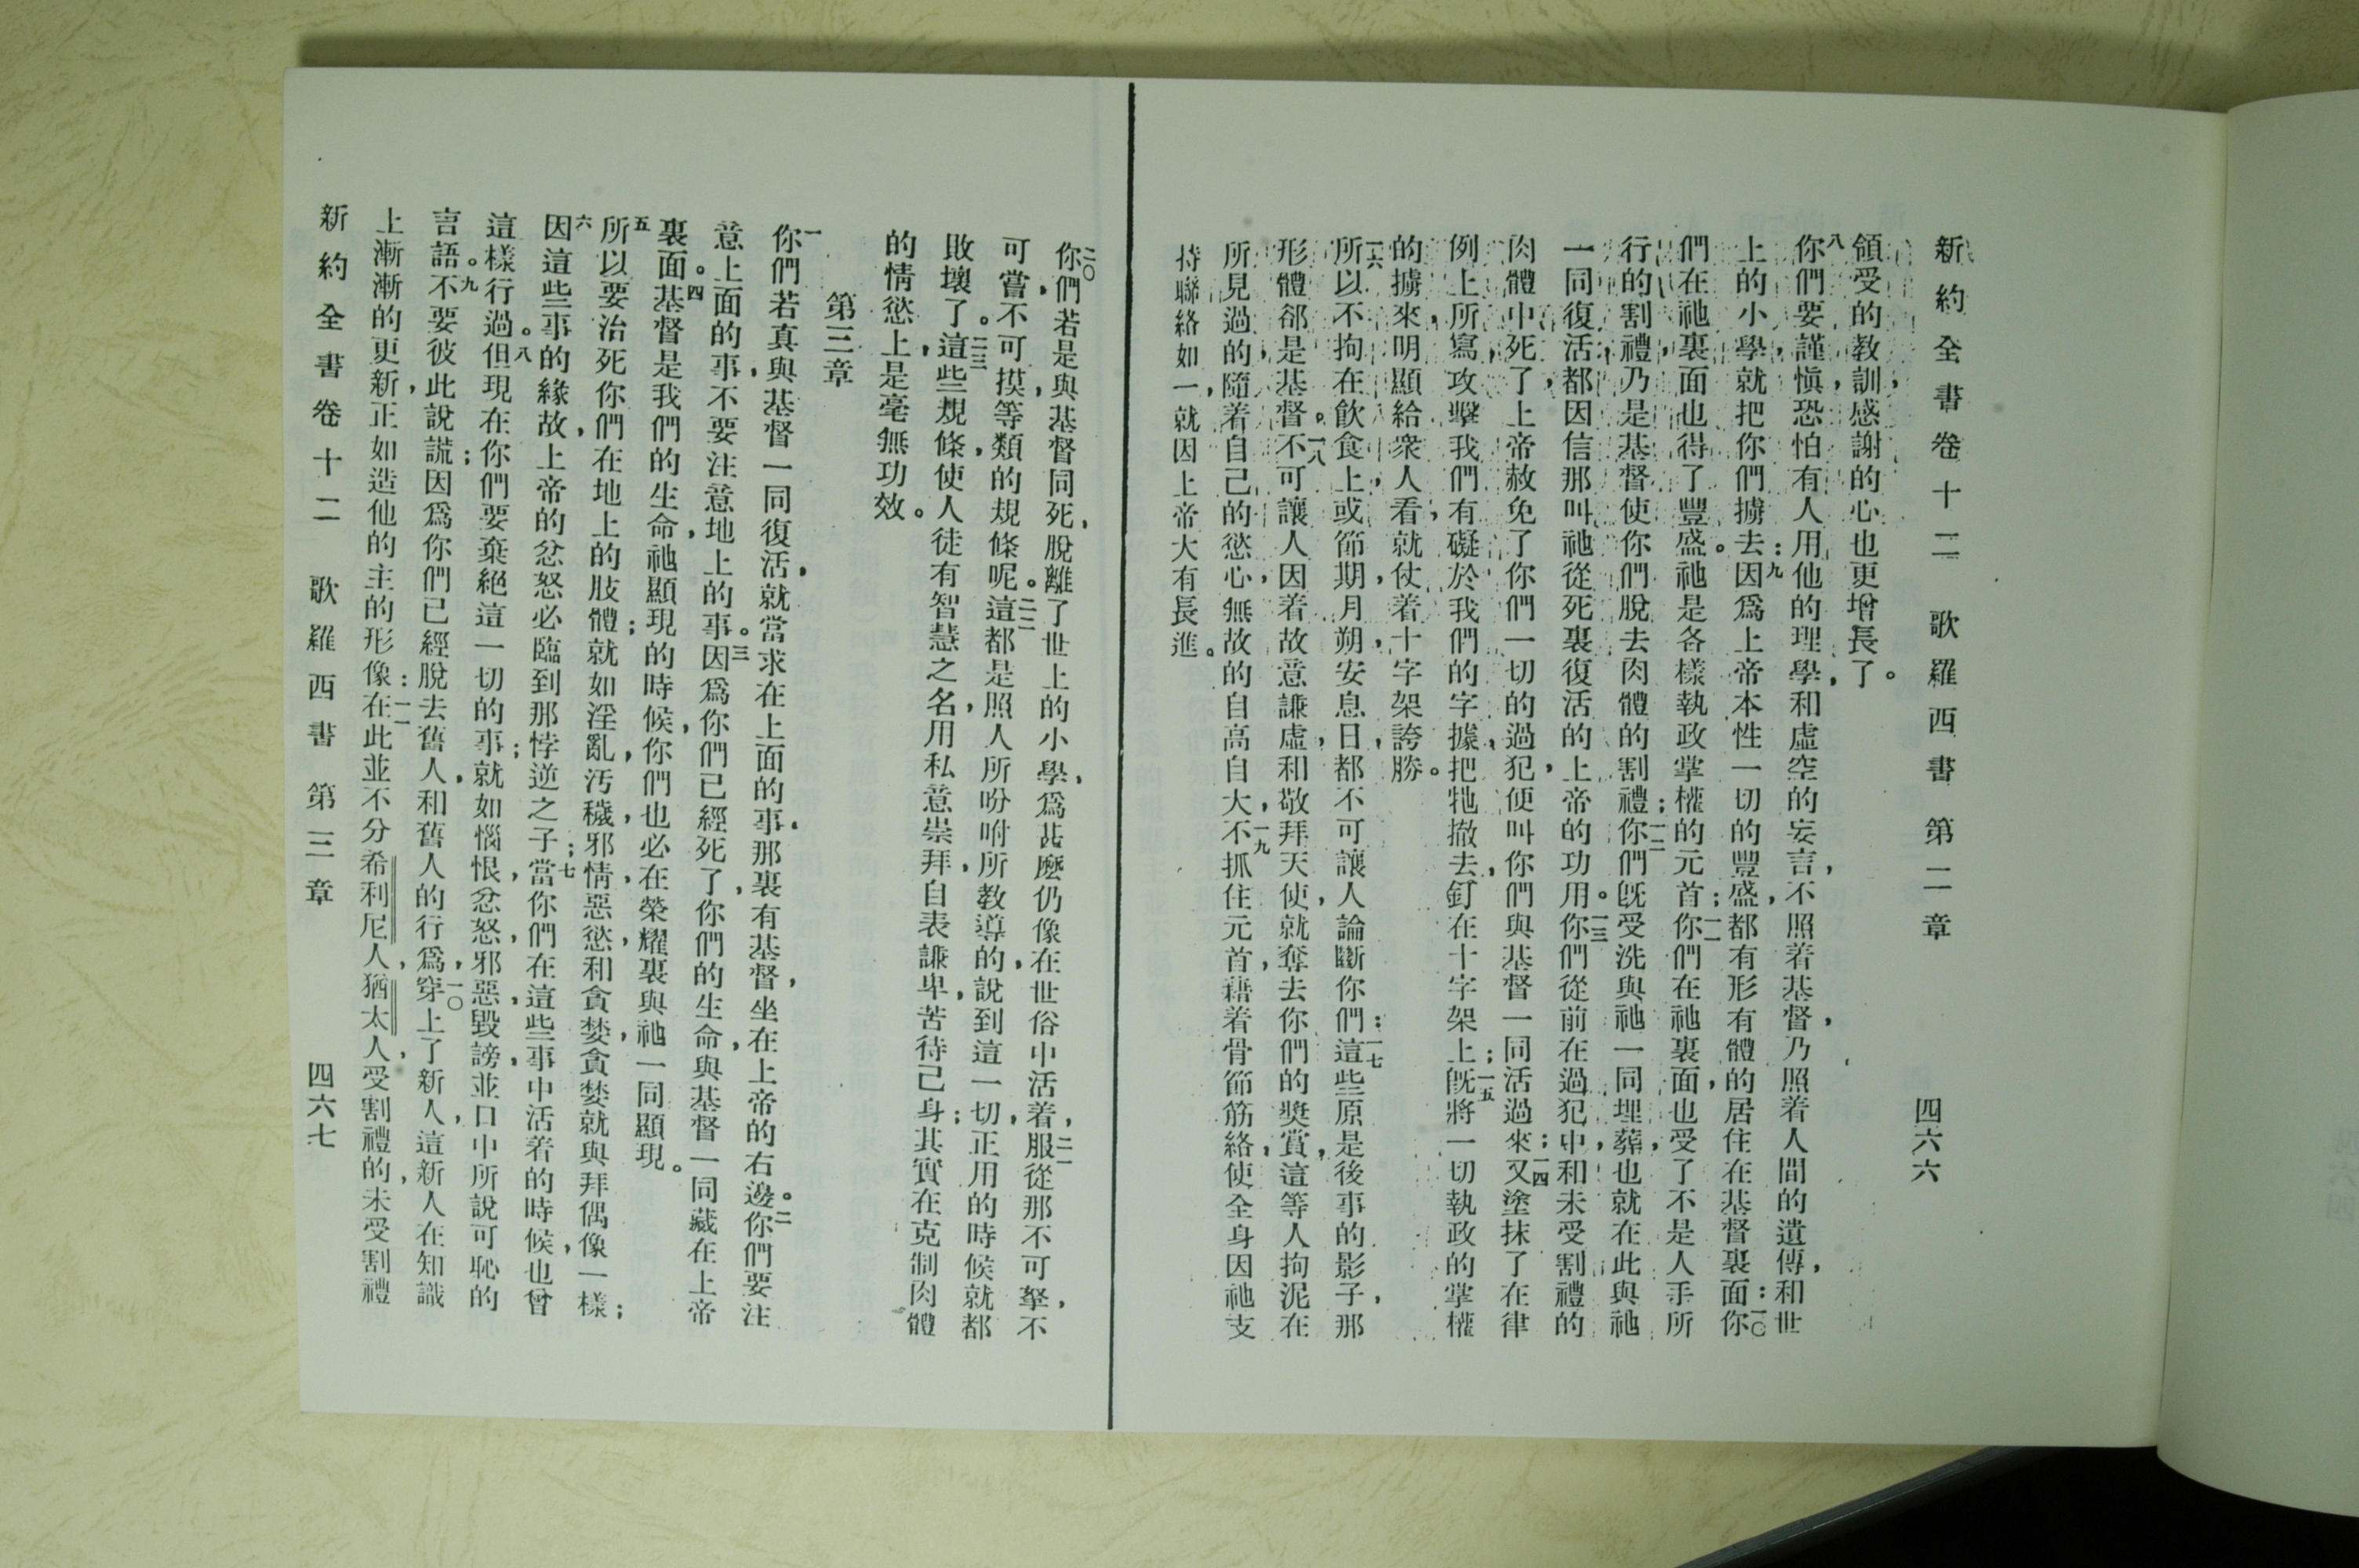 新約全書卷十二 歌羅西書 第二章 四六六
領受的教訓，感謝的心也更增長了。
八你們要謹愼，恐怕有人用他的理學，和虛空的妄言，不照着基督，乃照着人間的遺傳，和世
上的小學，就把你們擄去：九因爲上帝本性一切的豐盛，都有形有體的居住在基督裏面：一〇你
們在祂裏面也得了豐盛。祂是各樣執政掌權的元首；一一你們在祂裏面，也受了不是人手所
行的割禮，乃是基督使你們脫去肉體的割禮；一二你們旣受洗與祂一同埋葬，也就在此與祂
一同復活，都因信那叫祂從死裏復活的上帝的功用。一三你們從前在過犯中，和未受割禮的
肉體中死了，上帝赦免了你們一切的過犯，便叫你們與基督一同活過來；一四又塗抹了在律
例上所寫，攻擊我們，有礙於我們的字據，把牠撤去，釘在十字架上；一五旣將一切執政的掌權
的擄來，明顯給衆人看，就仗着十字架誇勝。
一六所以不拘在飲食上，或節期，月朔，安息日，都不可讓人論斷你們：一七這些原是後事的影子，那
形體郤是基督。一八不可讓人因着故意謙虛，和敬拜天使，就奪去你們的獎賞，這等人拘泥在
所見過的，隨着自己的慾心，無故的自高自大，一九不抓住元首，藉着骨節筋絡，使全身因祂支
持聯絡如一，就因上帝大有長進。
二〇你們若是與基督同死，脫離了世上的小學，爲甚麼仍像在世俗中活着，二一服從那不可拏，不
可嘗，不可摸，等類的規條呢。二二這都是照人所吩咐所教導的，說到這一切，正用的時候就都
敗壞了。二三這些規條，使人徒有智慧之名，用私意崇拜，自表謙卑，苦待己身；其實在克制肉體
的情慾上，是毫無功效。
第三章
一你們若真與基督一同復活，就當求在上面的事，那裏有基督，坐在上帝的右邊。二你們要注
意上面的事，不要注意地上的事。三因爲你們已經死了，你們的生命，與基督一同藏在上帝
裏面。四基督是我們的生命，祂顯現的時候，你們也必在榮耀裏與祂一同顯現。
五所以要治死你們在地上的肢體；就如淫亂，汚穢，邪情，惡慾，和貪婪，貪婪就與拜偶像一樣；
六因這些事的緣故，上帝的忿怒必臨到那悖逆之子；七當你們在這些事中活着的時候，也曾
這樣行過。八但現在你們要棄絕這一切的事；就如惱恨，忿怒，邪惡，毀謗，並口中所說可恥的
言語。九不要彼此說謊；因爲你們已經脫去舊人，和舊人的行爲，一〇穿上了新人，這新人在知識
上漸漸的更新，正如造他的主的形像：一一在此並不分希利尼人，猶太人，受割禮的，未受割禮
新約全書卷十二 歌羅西書 第三章 四六七